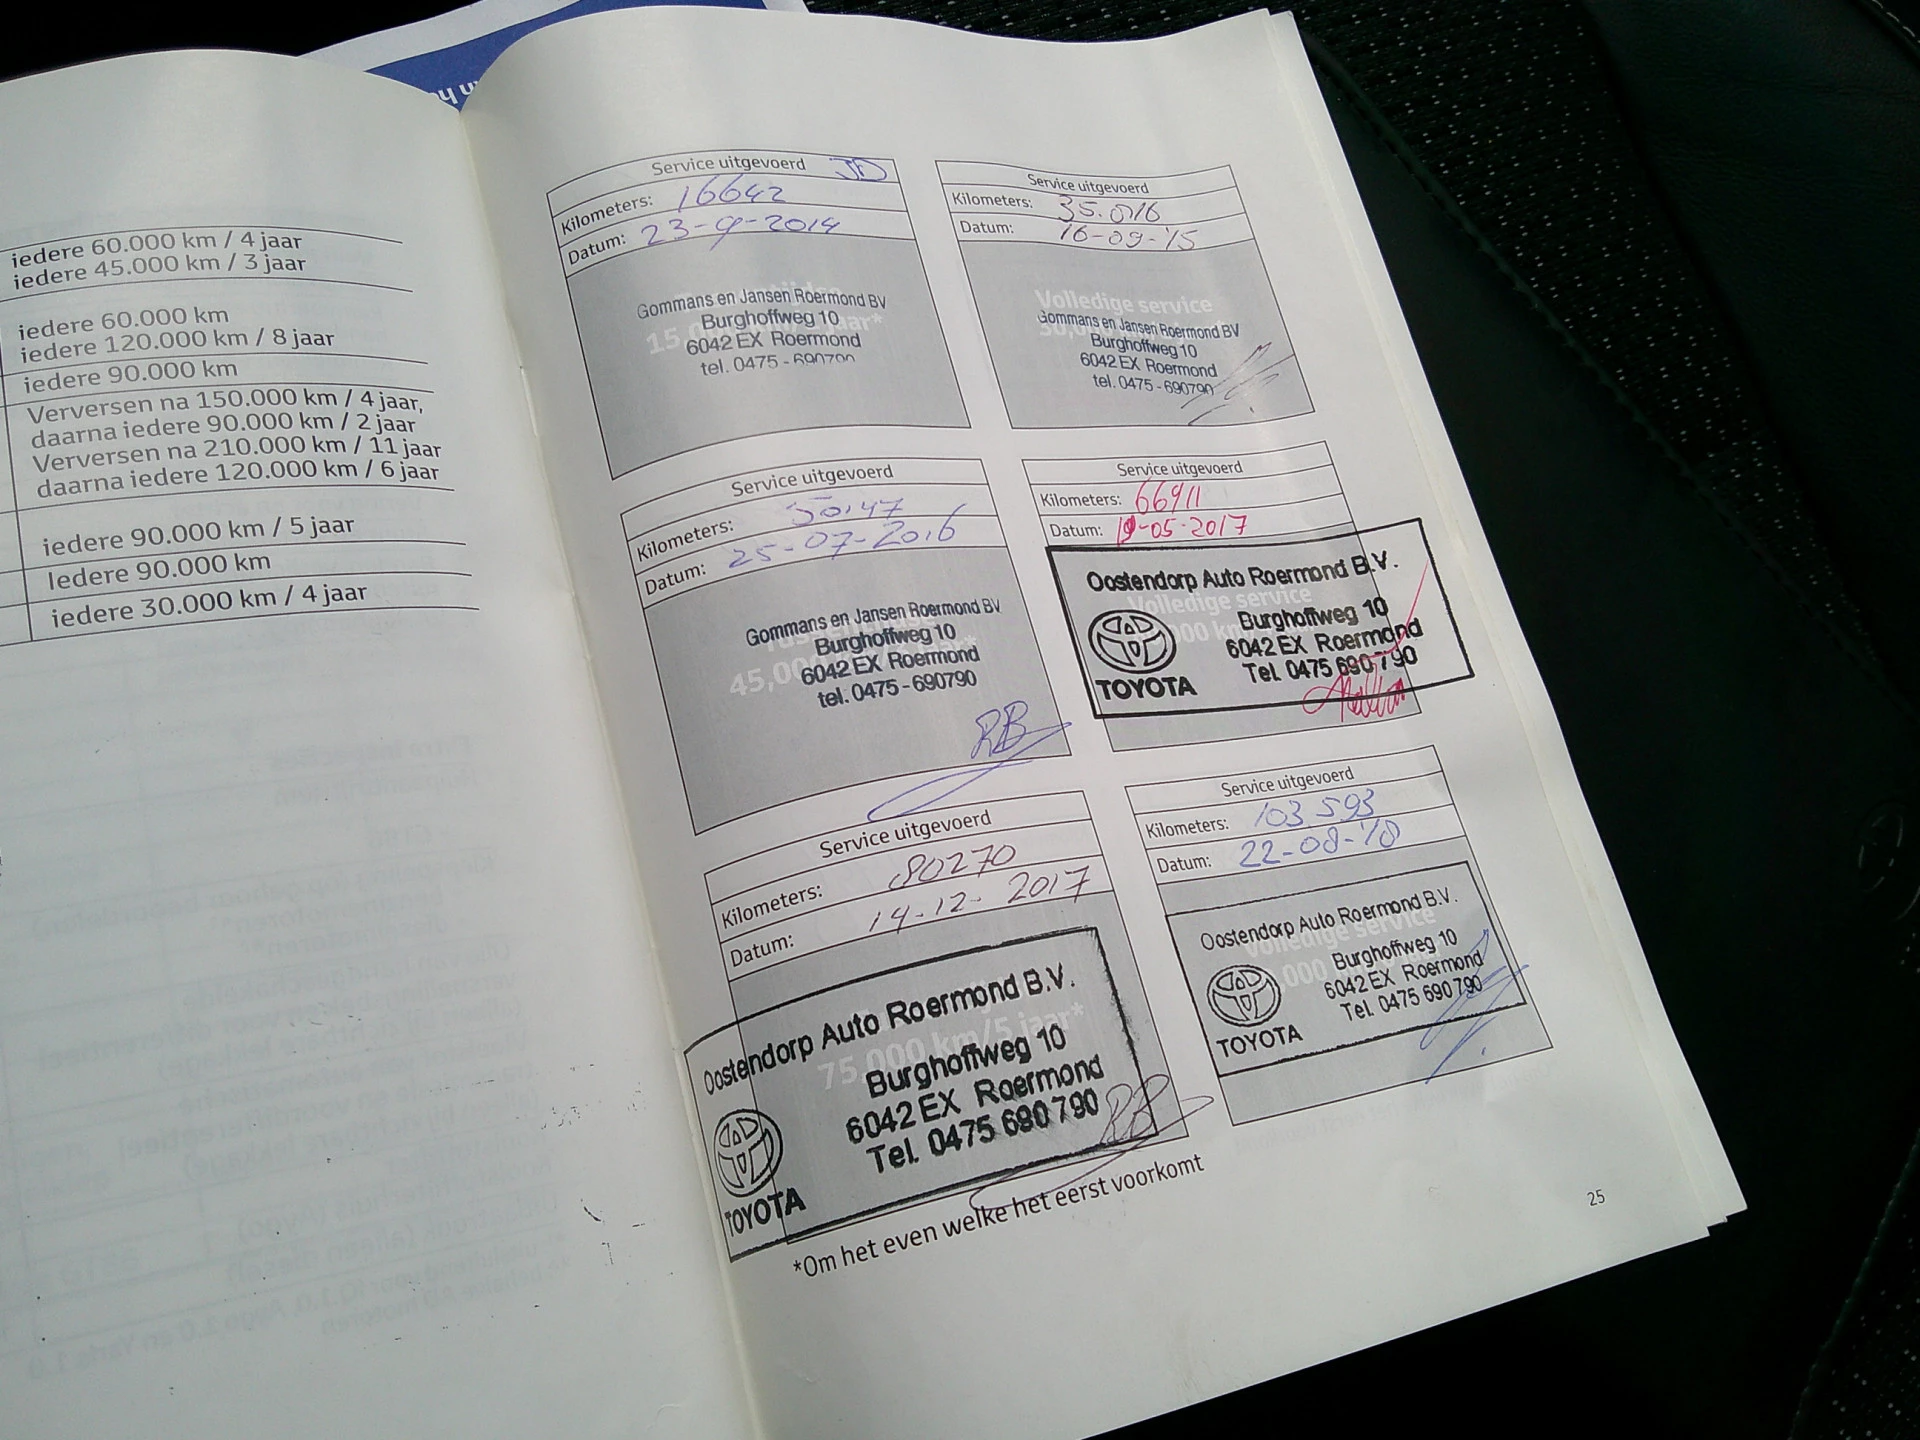 iedere 60.000 km / 4 jaar
iedere 45.000 km / 3 jaar
iedere 60.000 km
iedere 120.000 km / 8 jaar
iedere 90.000 km
Verversen na 150.000 km / 4 jaar,
daarna iedere 90.000 km / 2 jaar
Verversen na 210.000 km / 11 jaar
daarna iedere 120.000 km / 6 jaar
iedere 90.000 km / 5 jaar
Iedere 90.000 km
iedere 30.000 km / 4 jaar
Service uitgevoerd JD
Kilometers: 16642
Datum: 23-9-2014
Gommans en Jansen Roermond BV
Burghoffweg 10
6042 EX Roermond
tel. 0475 - 690790
Service uitgevoerd
Kilometers: 35.016
Datum: 16-09-'15
Volledige service
Gommans en Jansen Roermond BV
Burghoffweg 10
6042 EX Roermond
tel. 0475 - 690790
Service uitgevoerd
Kilometers: 50.147
Datum: 25-07-2016
Gommans en Jansen Roermond BV
Burghoffweg 10
6042 EX Roermond
tel. 0475 - 690790
RB
Service uitgevoerd
Kilometers: 66911
Datum: 19-05-2017
Oostendorp Auto Roermond B.V.
Volledige service
Burghoffweg 10
6042 EX Roermond
Tel. 0475 690 790
TOYOTA
Service uitgevoerd
Kilometers: 80270
Datum: 14-12-2017
Oostendorp Auto Roermond B.V.
75,000 km/5 jaar*
Burghoffweg 10
6042 EX Roermond
Tel. 0475 690 790
TOYOTA
RB
Service uitgevoerd
Kilometers: 103 593
Datum: 22-08-'18
Oostendorp Auto Roermond B.V.
Volledige service
Burghoffweg 10
6042 EX Roermond
Tel. 0475 690 790
TOYOTA
*Om het even welke het eerst voorkomt
25